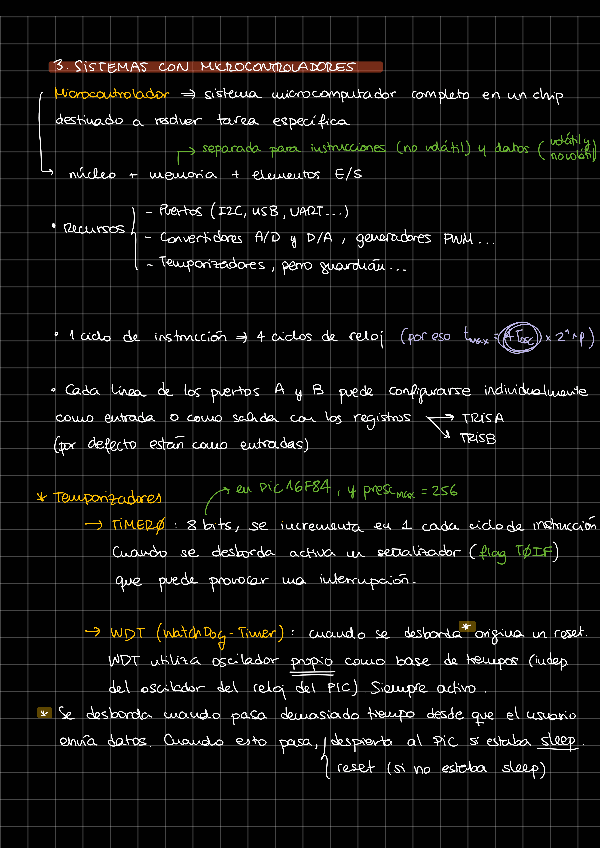 3. SISTEMAS CON MICROCONTROLADORES
Microcontrolador ⇒ sistema microcomputador completo en un chip
destinado a resolver tarea específica
→ separada para instrucciones (no volátil) y datos (volátil y no volátil)
→ núcleo + memoria + elementos E/S
• Recursos
- Puertos (I2C, USB, UART...)
- Convertidores A/D y D/A, generadores PWM...
- Temporizadores, perro guardián...
• 1 ciclo de instrucción → 4 ciclos de reloj (por eso tmax = 4Tosc × 2^n · p)
• Cada línea de los puertos A y B puede configurarse individualmente
como entrada o como salida con los registros → TRISA
(por defecto están como entradas) → TRISB
→ en PIC16F84, y presc max = 256
* Temporizadores
→ TIMER0: 8 bits, se incrementa en 1 cada ciclo de instrucción
Cuando se desborda activa un señalizador (flag T0IF)
que puede provocar una interrupción.
→ WDT (WatchDog-Timer): cuando se desborda * origina un reset.
WDT utiliza oscilador propio como base de tiempos (indep
del oscilador del reloj del PIC) Siempre activo.
* Se desborda cuando pasa demasiado tiempo desde que el usuario
envía datos. Cuando esto pasa, despierta al PIC si estaba sleep.
reset (si no estaba sleep)